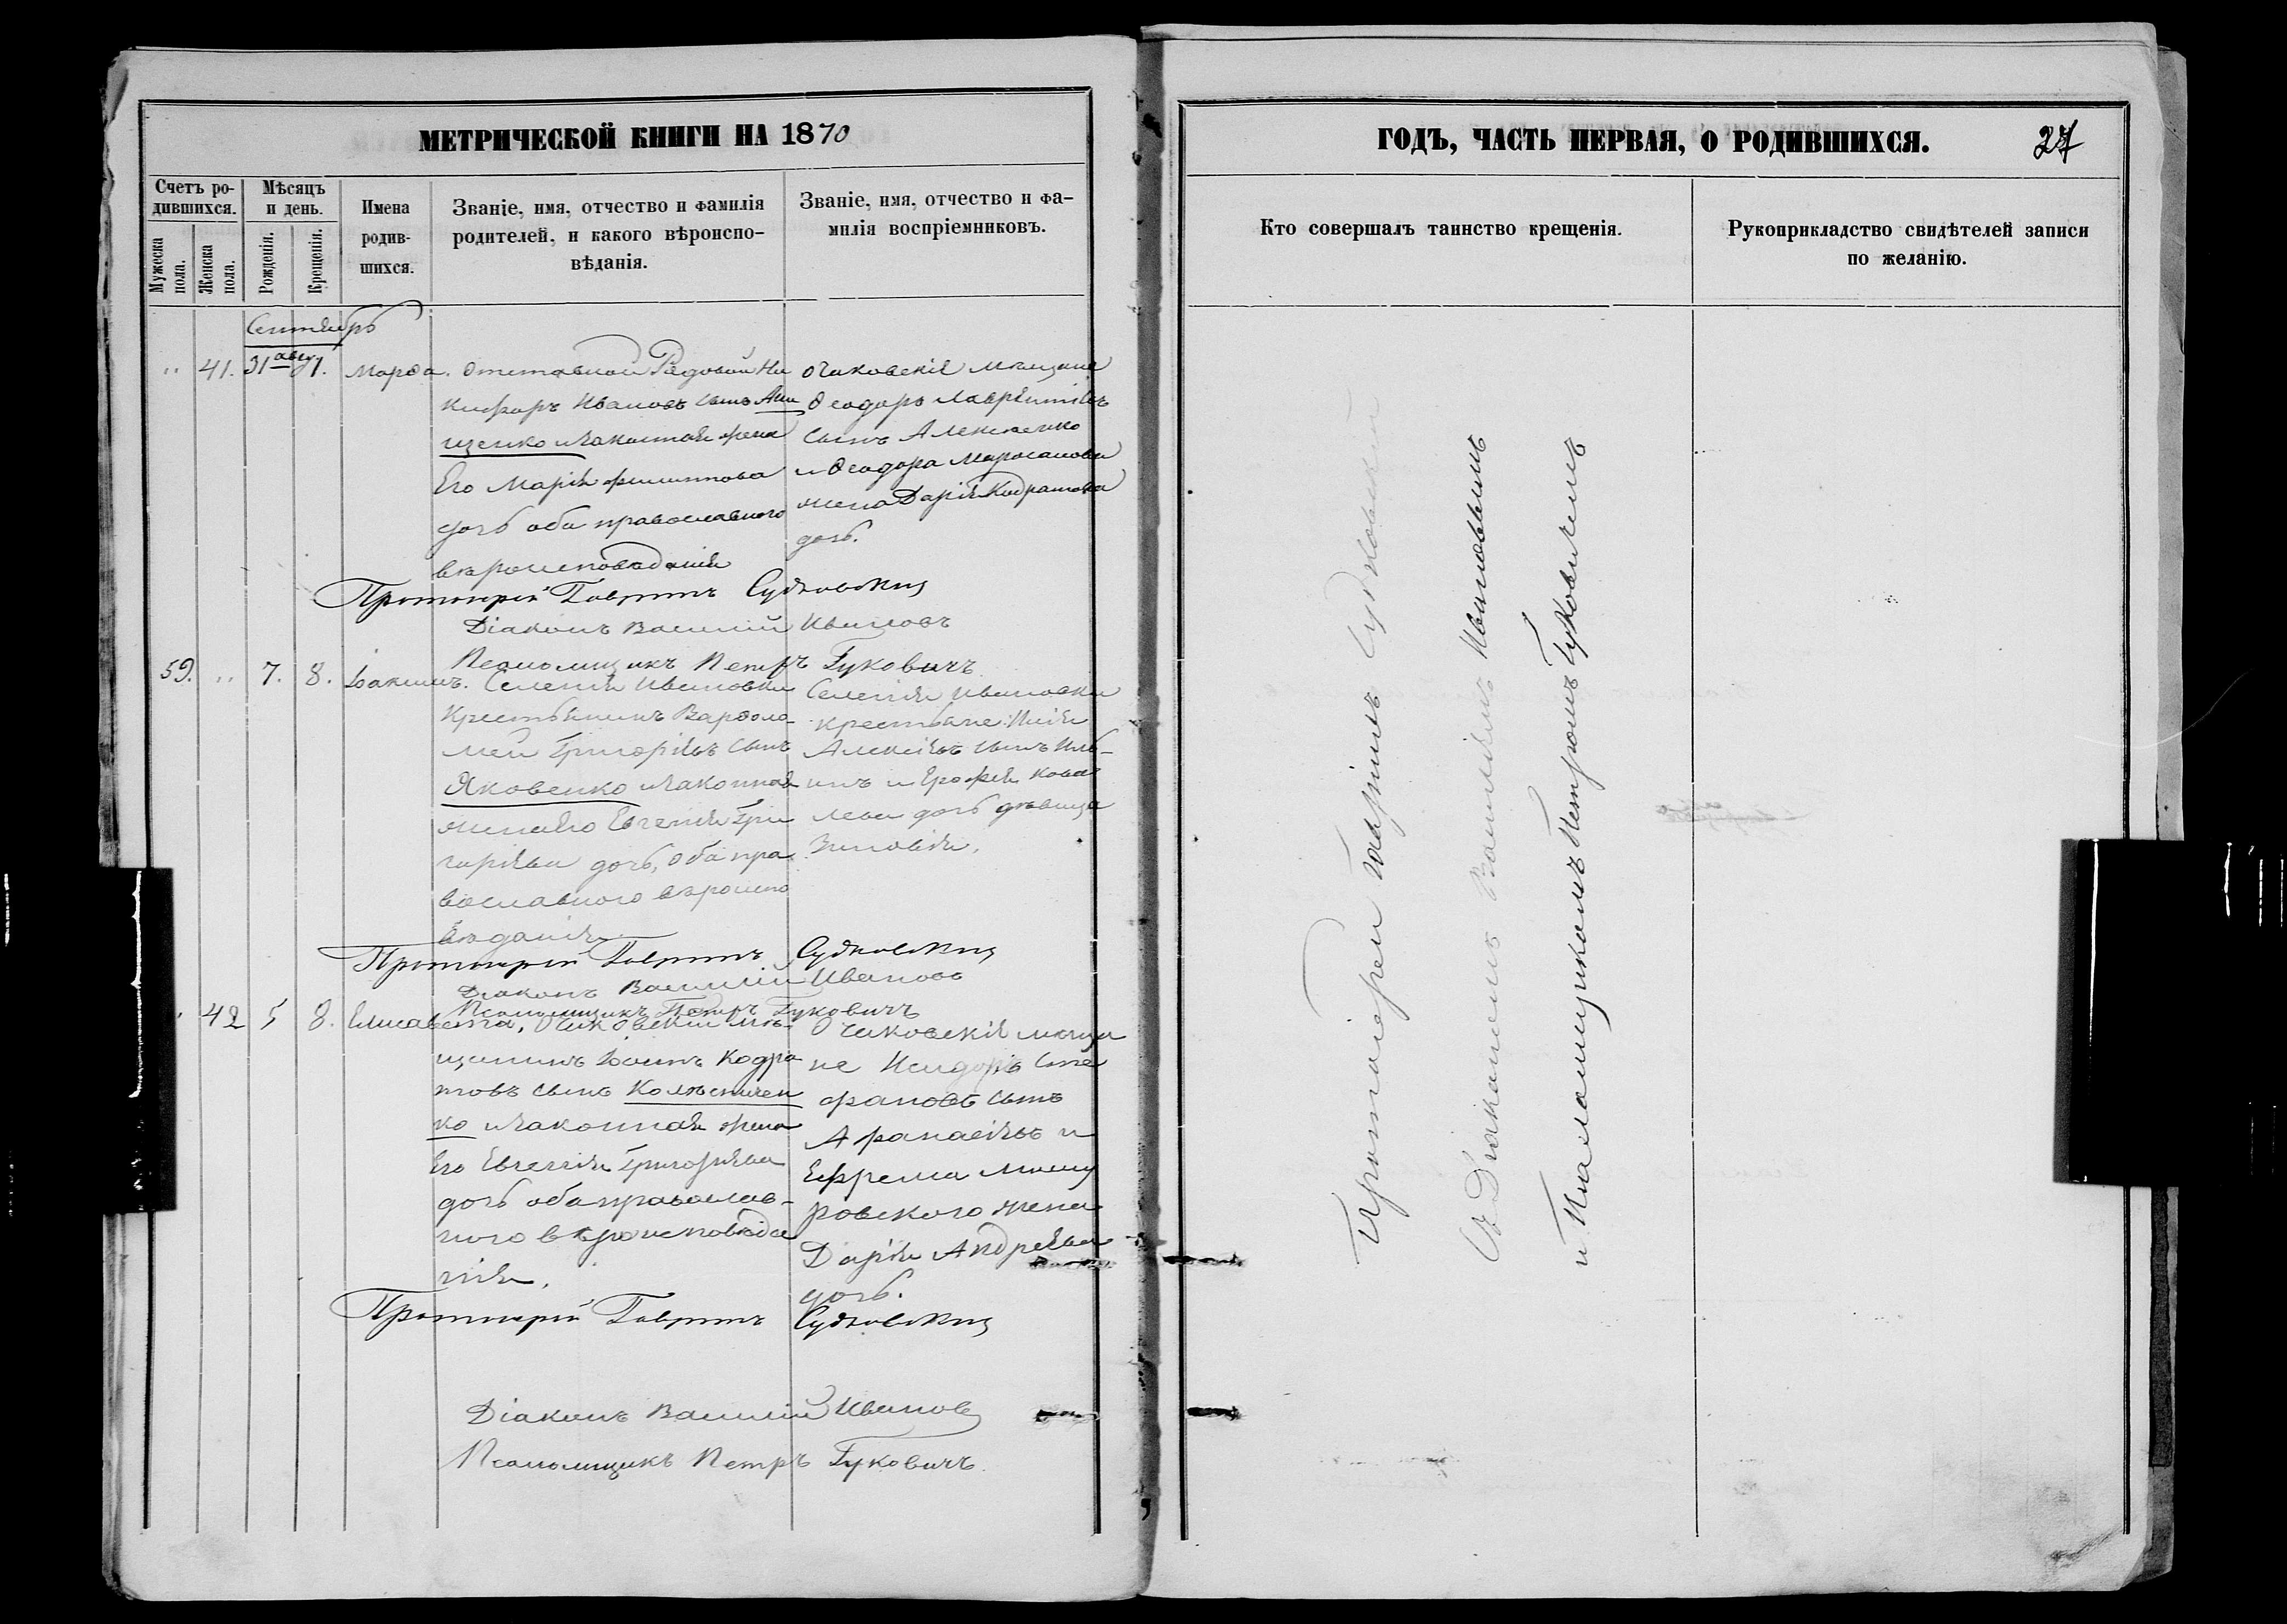 МЕТРИЧЕСКОЙ КНИГИ НА 1870
Счетъ ро-
дившихся.
Мужеска
пола.
Женска
пола.
Мѣсяцъ
и день.
Рожденія.
Крещенія.
Имена
родив-
шихся.
Званіе, имя, отчество и фамилія
родителей, и какого вѣроиспо-
вѣданія.
Званіе, имя, отчество и фа-
милія воспріемниковъ.
Сентябрь
" 41. 31 авгу 1. Марѳа. Отставной Рядовой Ни
кифоръ Ивановъ сынъ
щенко и законная жена
Его Марія Филиппова
дочь оба православнаго
вѣроисповѣданія
Очаковскіе мѣщане
Ѳеодоръ Лаврентіевъ
сынъ Алексѣенко
и Ѳеодора
жена Дарія Кодратова
дочь.
Протоіерей Гавріилъ Судковскій
Діаконъ Василій Ивановъ
Псаломщикъ Петръ Гуковичъ
59. " 7. 8. Іоакимъ. Селенія Ивановки
Крестьянинъ Варѳоло-
мей Григорьевъ сынъ
Яковенко и законная
жена Его Евгенія Гри
горьева дочь, оба пра
вославнаго вѣроиспо
вѣданія
Селенія Ивановки
крестьяне: Илія
Алексѣевъ сынъ Иль-
инъ и Ерофея Кова
лева дочь дѣвица
Зиновія.
Протоіерей Гавріилъ Судковскій
Діаконъ Василій Ивановъ
Псаломщикъ Петръ Гуковичъ
42 5 8. Елисавета, Очаковскій мѣ-
щанинъ Іоаннъ Кодра
товъ сынъ Колѣсничен
ко и законная жена
Его Евгенія Григорьева
дочь оба православ-
наго вѣроисповѣда
нія.
Очаковскіе мѣща
не Исидоръ Сте
фановъ сынъ
Афанасьевъ и
Ефрема
ровскаго жена
Дарія Андреева
дочь.
Протоіерей Гавріилъ Судковскій
Діаконъ Василій Ивановъ
Псаломщикъ Петръ Гуковичъ
ГОДЪ, ЧАСТЬ ПЕРВАЯ, О РОДИВШИХСЯ.
27
Кто совершалъ таинство крещенія.
Рукоприкладство свидѣтелей записи
по желанію.
Протоіерей Гавріилъ Судковскій
Съ Діакономъ Василіемъ Ивановымъ
и Псаломщикомъ Петромъ Гуковичемъ